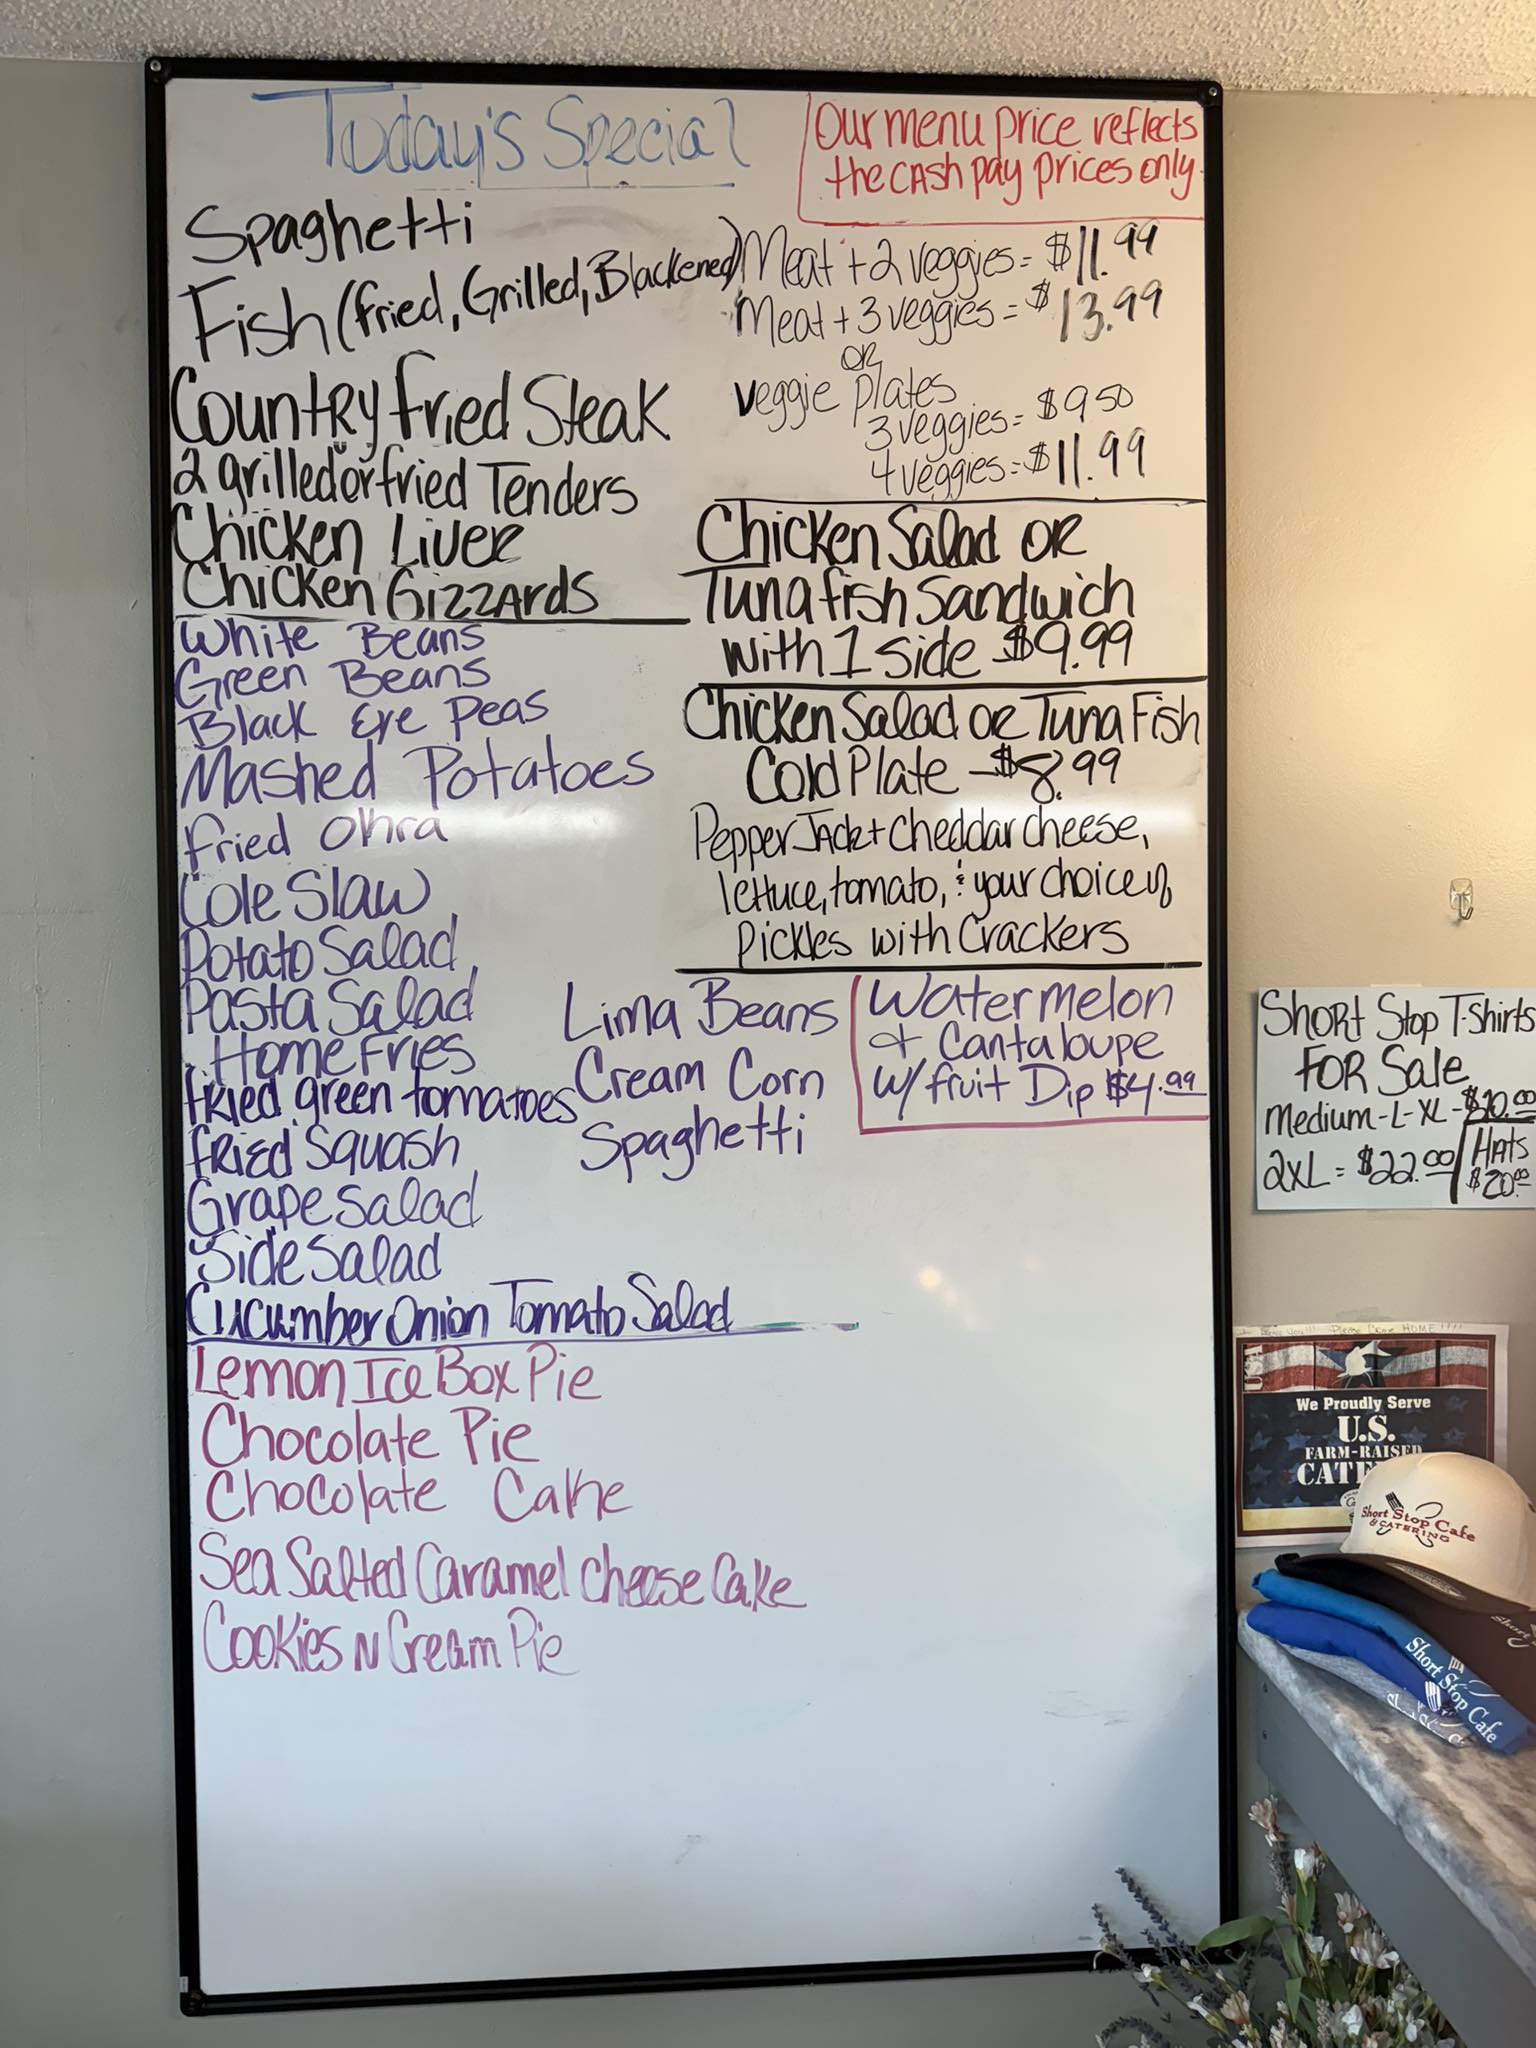 Today's Special
Our menu price reflects
the cash pay prices only.
Spaghetti
Fish (fried, Grilled, Blackened)
Country fried Steak
2 grilled or fried Tenders
Chicken Liver
Chicken Gizzards
Meat + 2 veggies = $11.99
Meat + 3 veggies = $13.99
OR
veggie plates
3 veggies = $9.50
4 veggies = $11.99
Chicken Salad OR
Tuna fish Sandwich
with 1 side $9.99
Chicken Salad or Tuna Fish
Cold Plate - $8.99
Pepper Jack + Cheddar cheese,
lettuce, tomato, & your choice of
Pickles with Crackers
White Beans
Green Beans
Black Eye Peas
Mashed Potatoes
Fried Okra
Cole Slaw
Potato Salad
Pasta Salad
Home Fries
fried green tomatoes
fried Squash
Grape Salad
Side Salad
Cucumber Onion Tomato Salad
Lima Beans
Cream Corn
Spaghetti
Watermelon
+ Cantaloupe
w/ fruit Dip $4.99
Lemon Ice Box Pie
Chocolate Pie
Chocolate Cake
Sea Salted Caramel Cheese Cake
Cookies N Cream Pie
Short Stop T-Shirts
FOR Sale
Medium-L-XL-$20.00
2XL = $22.00 / Hats
$20.00
Please Come HOME!!!!
USA
We Proudly Serve
U.S.
FARM-RAISED
Short Stop Cafe
& CATERING
Short Stop Cafe